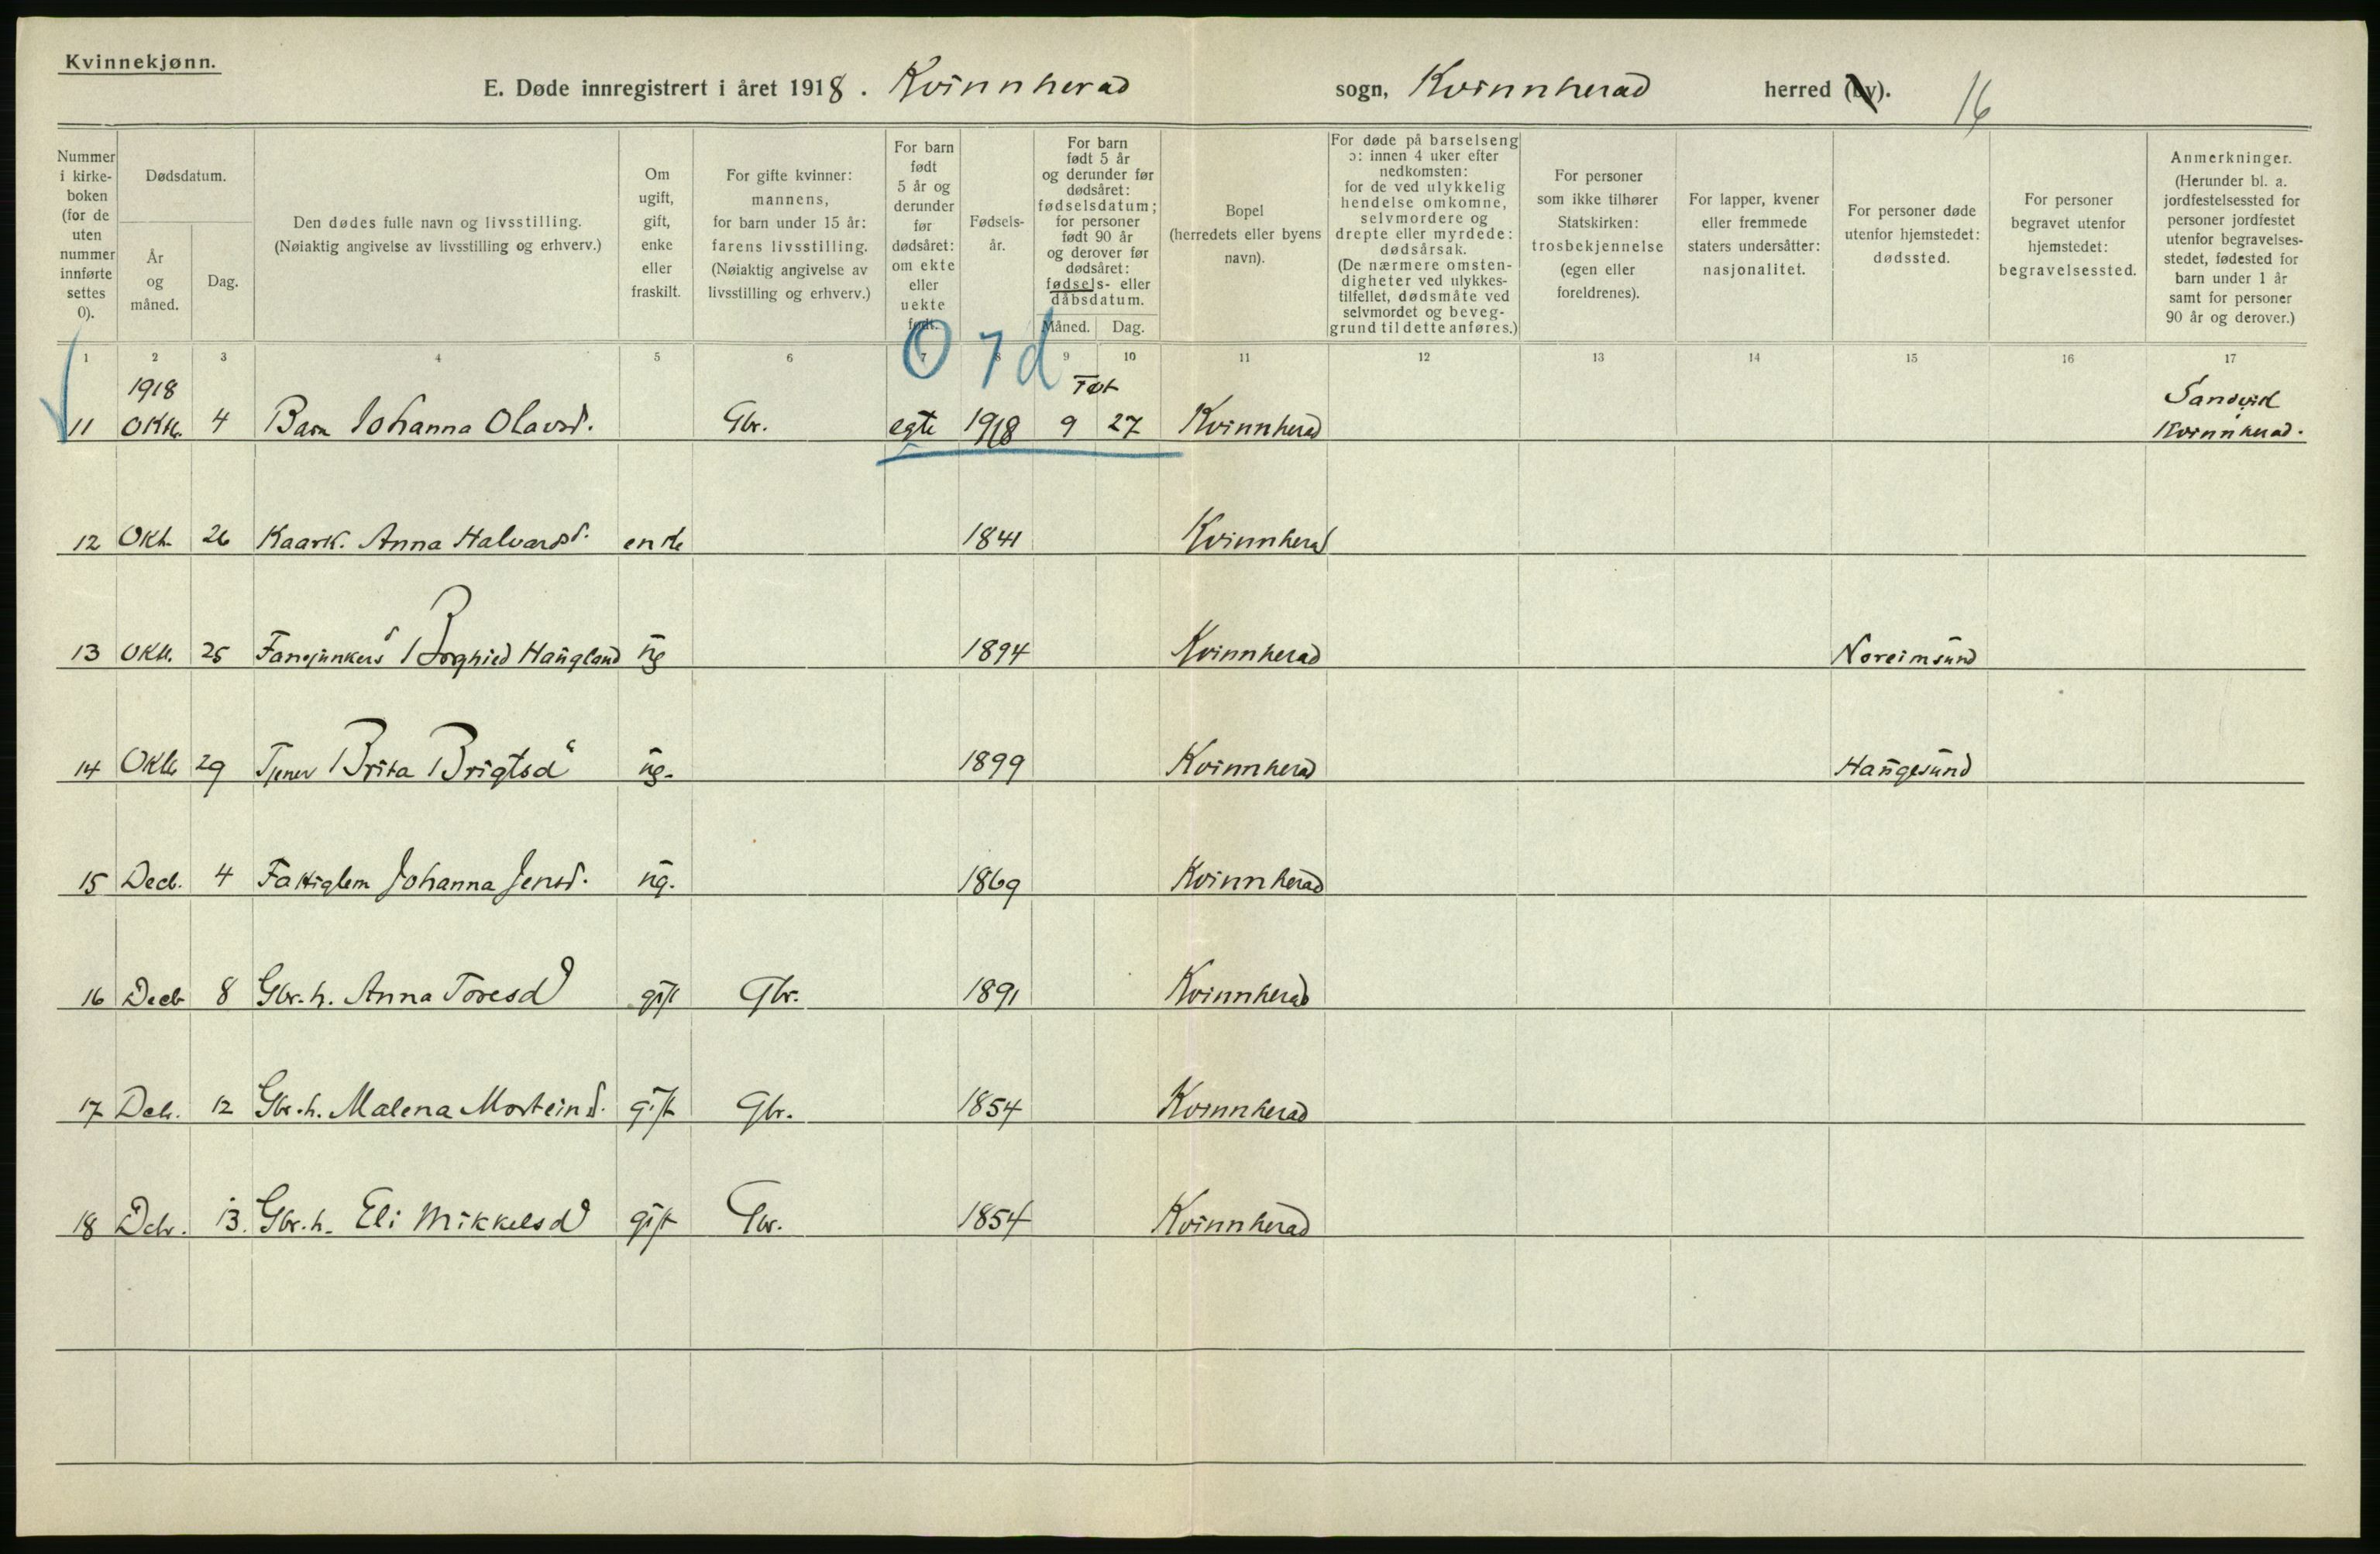 Kvinnekjønn.
E. Døde innregistrert i året 1918. Kvinnherad sogn, Kvinnherad herred (by). 16
Nummer i kirke-boken (for de uten nummer innførte settes 0).
Dødsdatum.
År og måned.
Dag.
Den dødes fulle navn og livsstilling. (Nøiaktig angivelse av livsstilling og erhverv.)
Om ugift, gift, enke eller fraskilt.
For gifte kvinner: mannens, for barn under 15 år: farens livsstilling. (Nøiaktig angivelse av livsstilling og erhverv.)
For barn født 5 år og derunder før dødsåret: om ekte eller uekte født.
Fødsels-år.
For barn født 5 år og derunder før dødsåret: fødselsdatum; for personer født 90 år og derover før dødsåret: fødsels- eller dåbsdatum.
Måned. Dag.
Bopel (herredets eller byens navn).
For døde på barselseng ɔ: innen 4 uker efter nedkomsten: for de ved ulykkelig hendelse omkomne, selvmordere og drepte eller myrdede: dødsårsak. (De nærmere omsten-digheter ved ulykkes-tilfellet, dødsmåte ved selvmordet og beveg-grund til dette anføres.)
For personer som ikke tilhører Statskirken: trosbekjennelse (egen eller foreldrenes).
For lapper, kvener eller fremmede staters undersåtter: nasjonalitet.
For personer døde utenfor hjemstedet: dødssted.
For personer begravet utenfor hjemstedet: begravelsessted.
Anmerkninger. (Herunder bl. a. jordfestelsessted for personer jordfestet utenfor begravelses-stedet, fødested for barn under 1 år samt for personer 90 år og derover.)
1 2 3 4 5 6 7 8 9 10 11 12 13 14 15 16 17
0 7 d
1918 Født Sandvik
11 Okt. 4 Barn Johanna Olavsd. Gbr. egte 1918 9 27 Kvinnherad Kvinnherad.
12 Okt. 26 Kaark. Anna Halvardsd. enke 1841 Kvinnherad
13 Okt. 25 Fanejunkersd Borghild Haugland ug 1894 Kvinnherad Noreimsund
14 Okt 29 Tjener Brita Brigtsd ug. 1899 Kvinnherad Haugesund
15 Decb. 4 Fattiglem Johanna Jensd. ug. 1869 Kvinnherad
16 Decb 8 Gbr. h. Anna Toresd gift Gbr. 1891 Kvinnherad
17 Dcb. 12 Gbr. h. Malena Mosteind. gift Gbr. 1854 Kvinnherad
18 Dcbr. 13. Gbr. h. Eli Mikkelsd gift Gbr. 1854 Kvinnherad